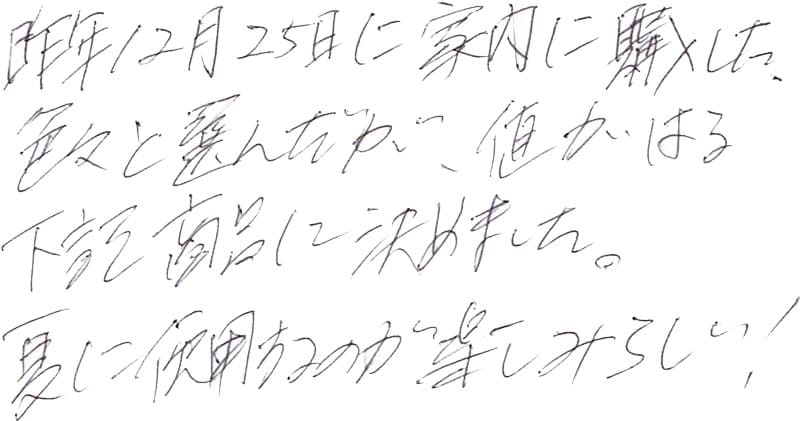 昨年12月25日に家内に購入した、
色々と選んだが、値がはる
下記商品に決めました。
夏に使用するのが楽しみらしい!